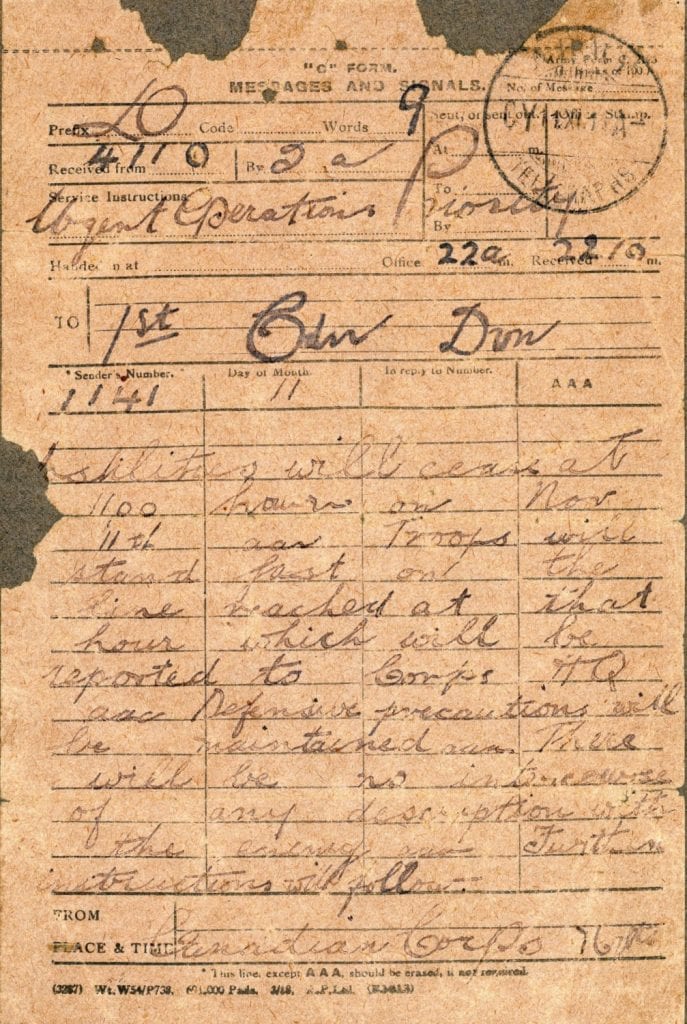 "C" FORM.
MESSAGES AND SIGNALS.
No. of Message
Prefix DO Code Words 9
Sent, or sent out. Office Stamp.
Received from By 2 a
At
Service Instructions
To
Urgent Operations Priority
By
Handed in at Office 22a m. Received m.
TO 1st Cdn Divn
* Sender's Number. Day of Month In reply to Number. AAA
1141 11
will cease at
1100 hours on Nov
11th aaa Troops will
stand fast on the
line reached at that
hour which will be
reported to Corps HQ
aaa Defensive precautions will
be maintained aaa There
will be no intercourse
of any description with
the enemy aaa Further
instructions will follow
FROM
PLACE & TIME Canadian Corps
* This line, except AAA, should be erased, if not required.
(3287) Wt. W54/P738. 691,000 Pads. 3/18.